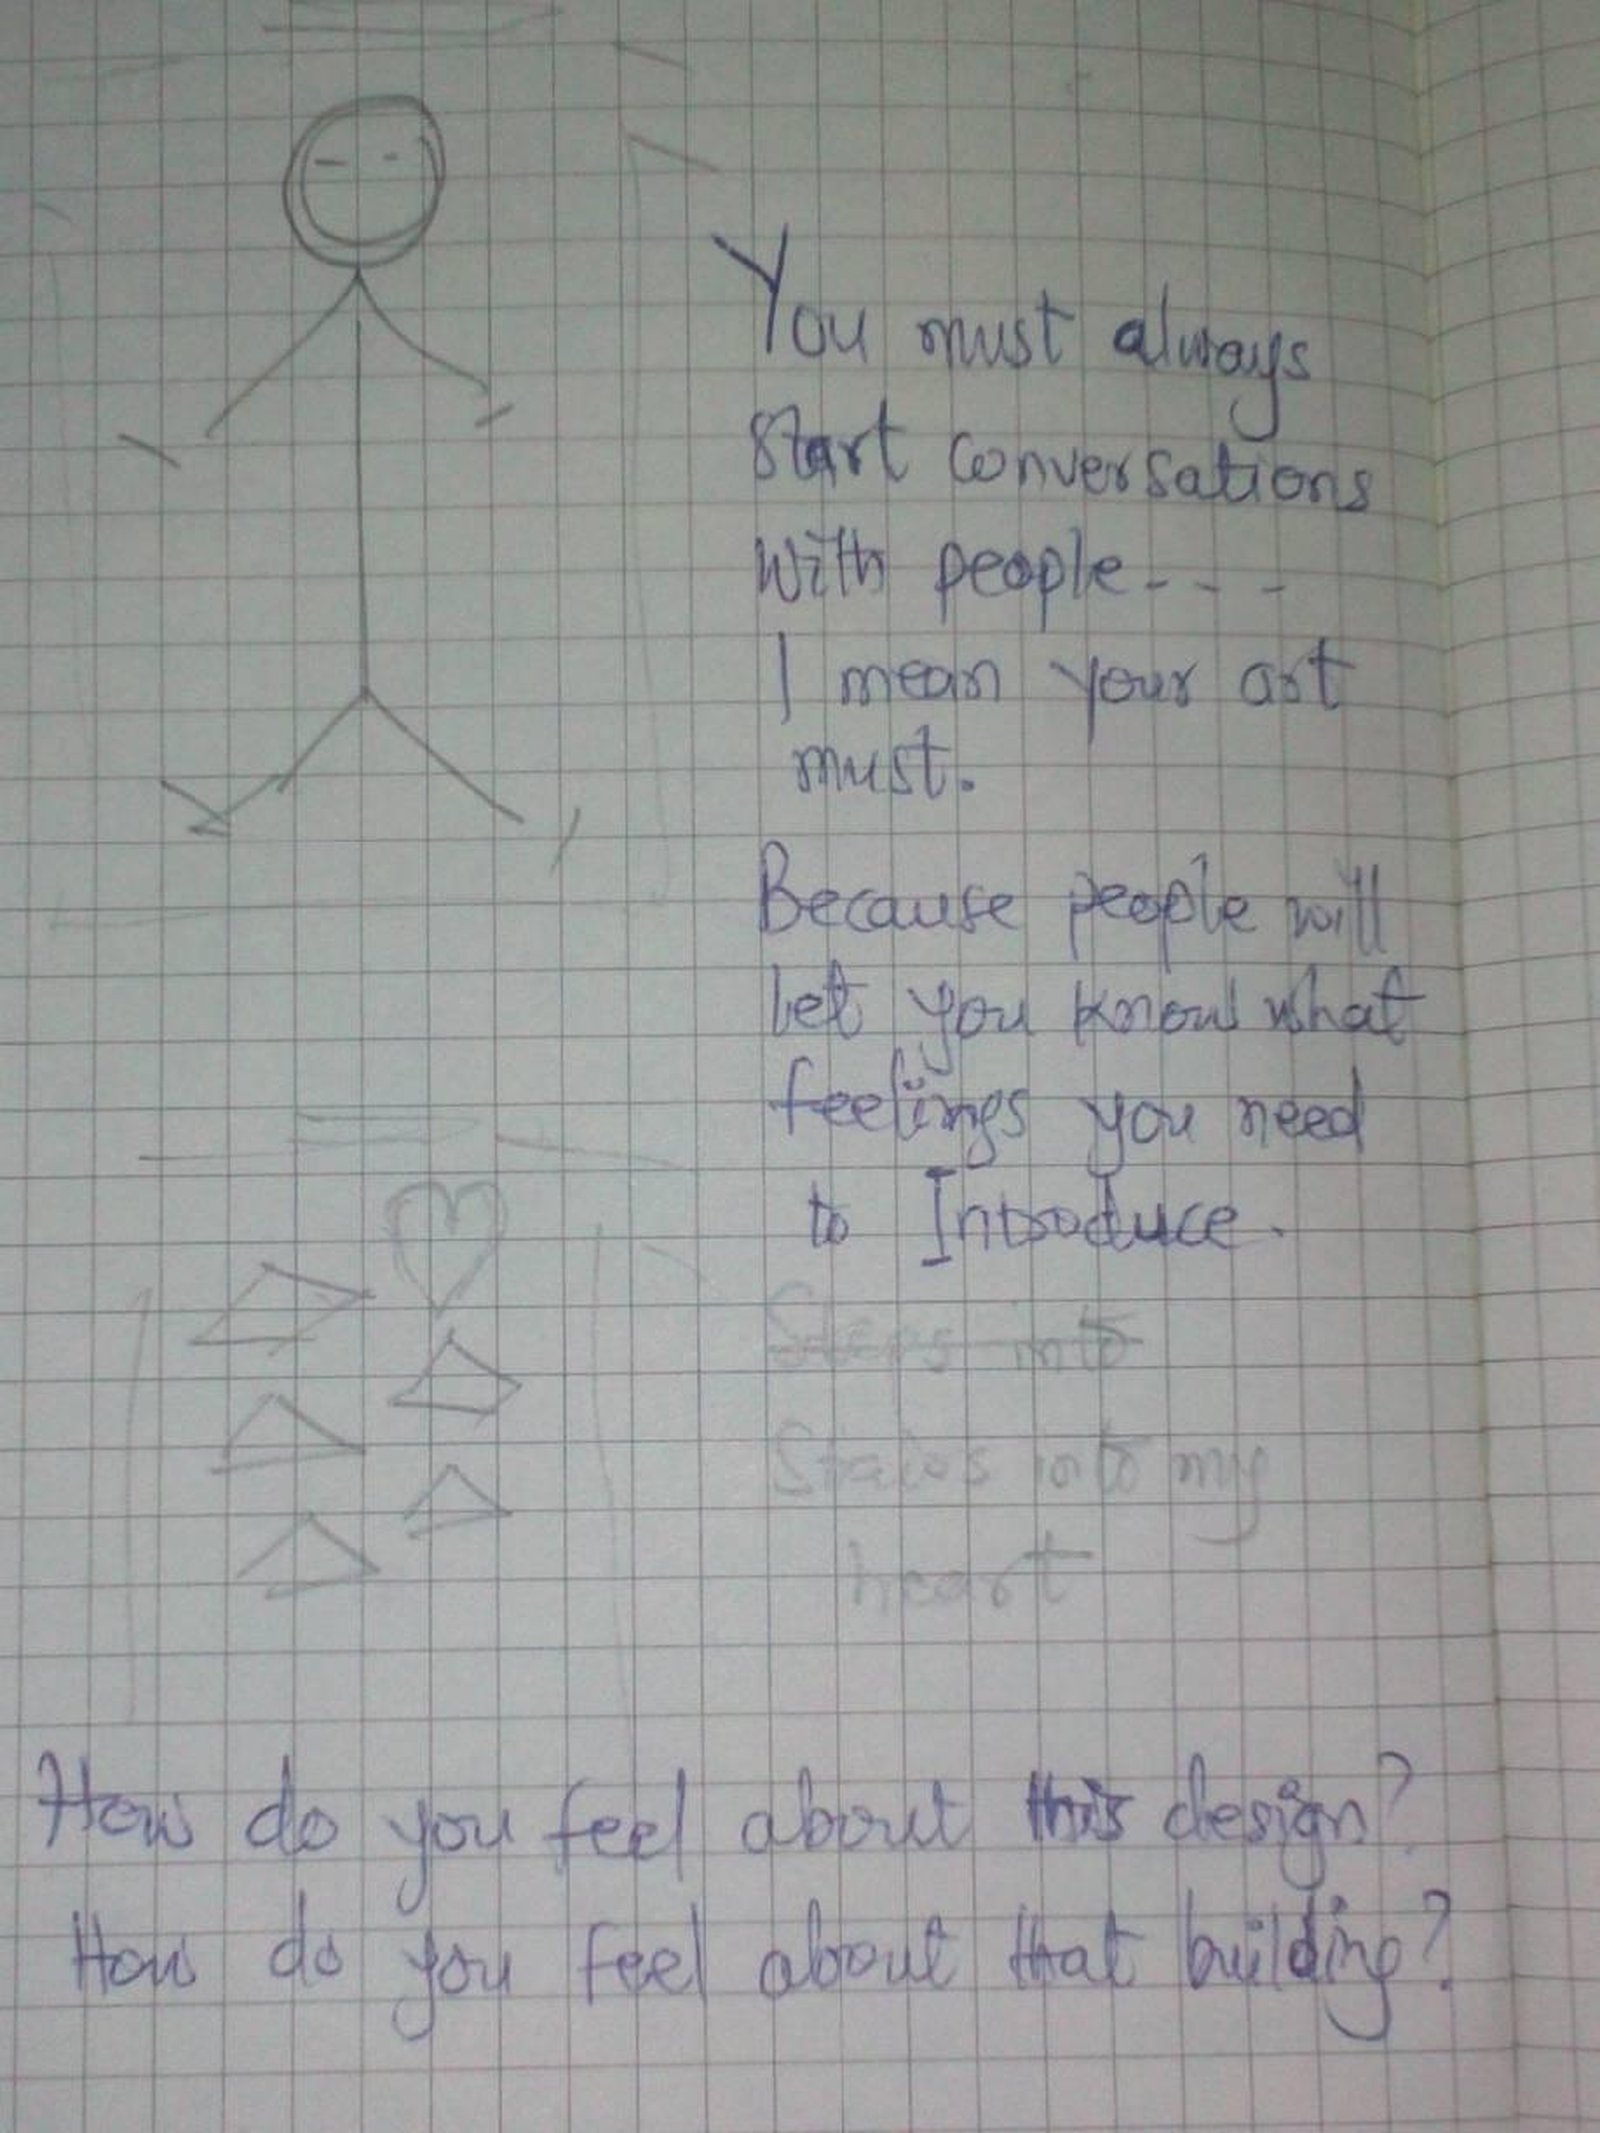 You must always
Start conversations
With people - - -
I mean your art
must.
Because people will
let you know what
feelings you need
to Introduce.
Steps into
Stairs into my
heart
How do you feel about this design?
How do you feel about that building?